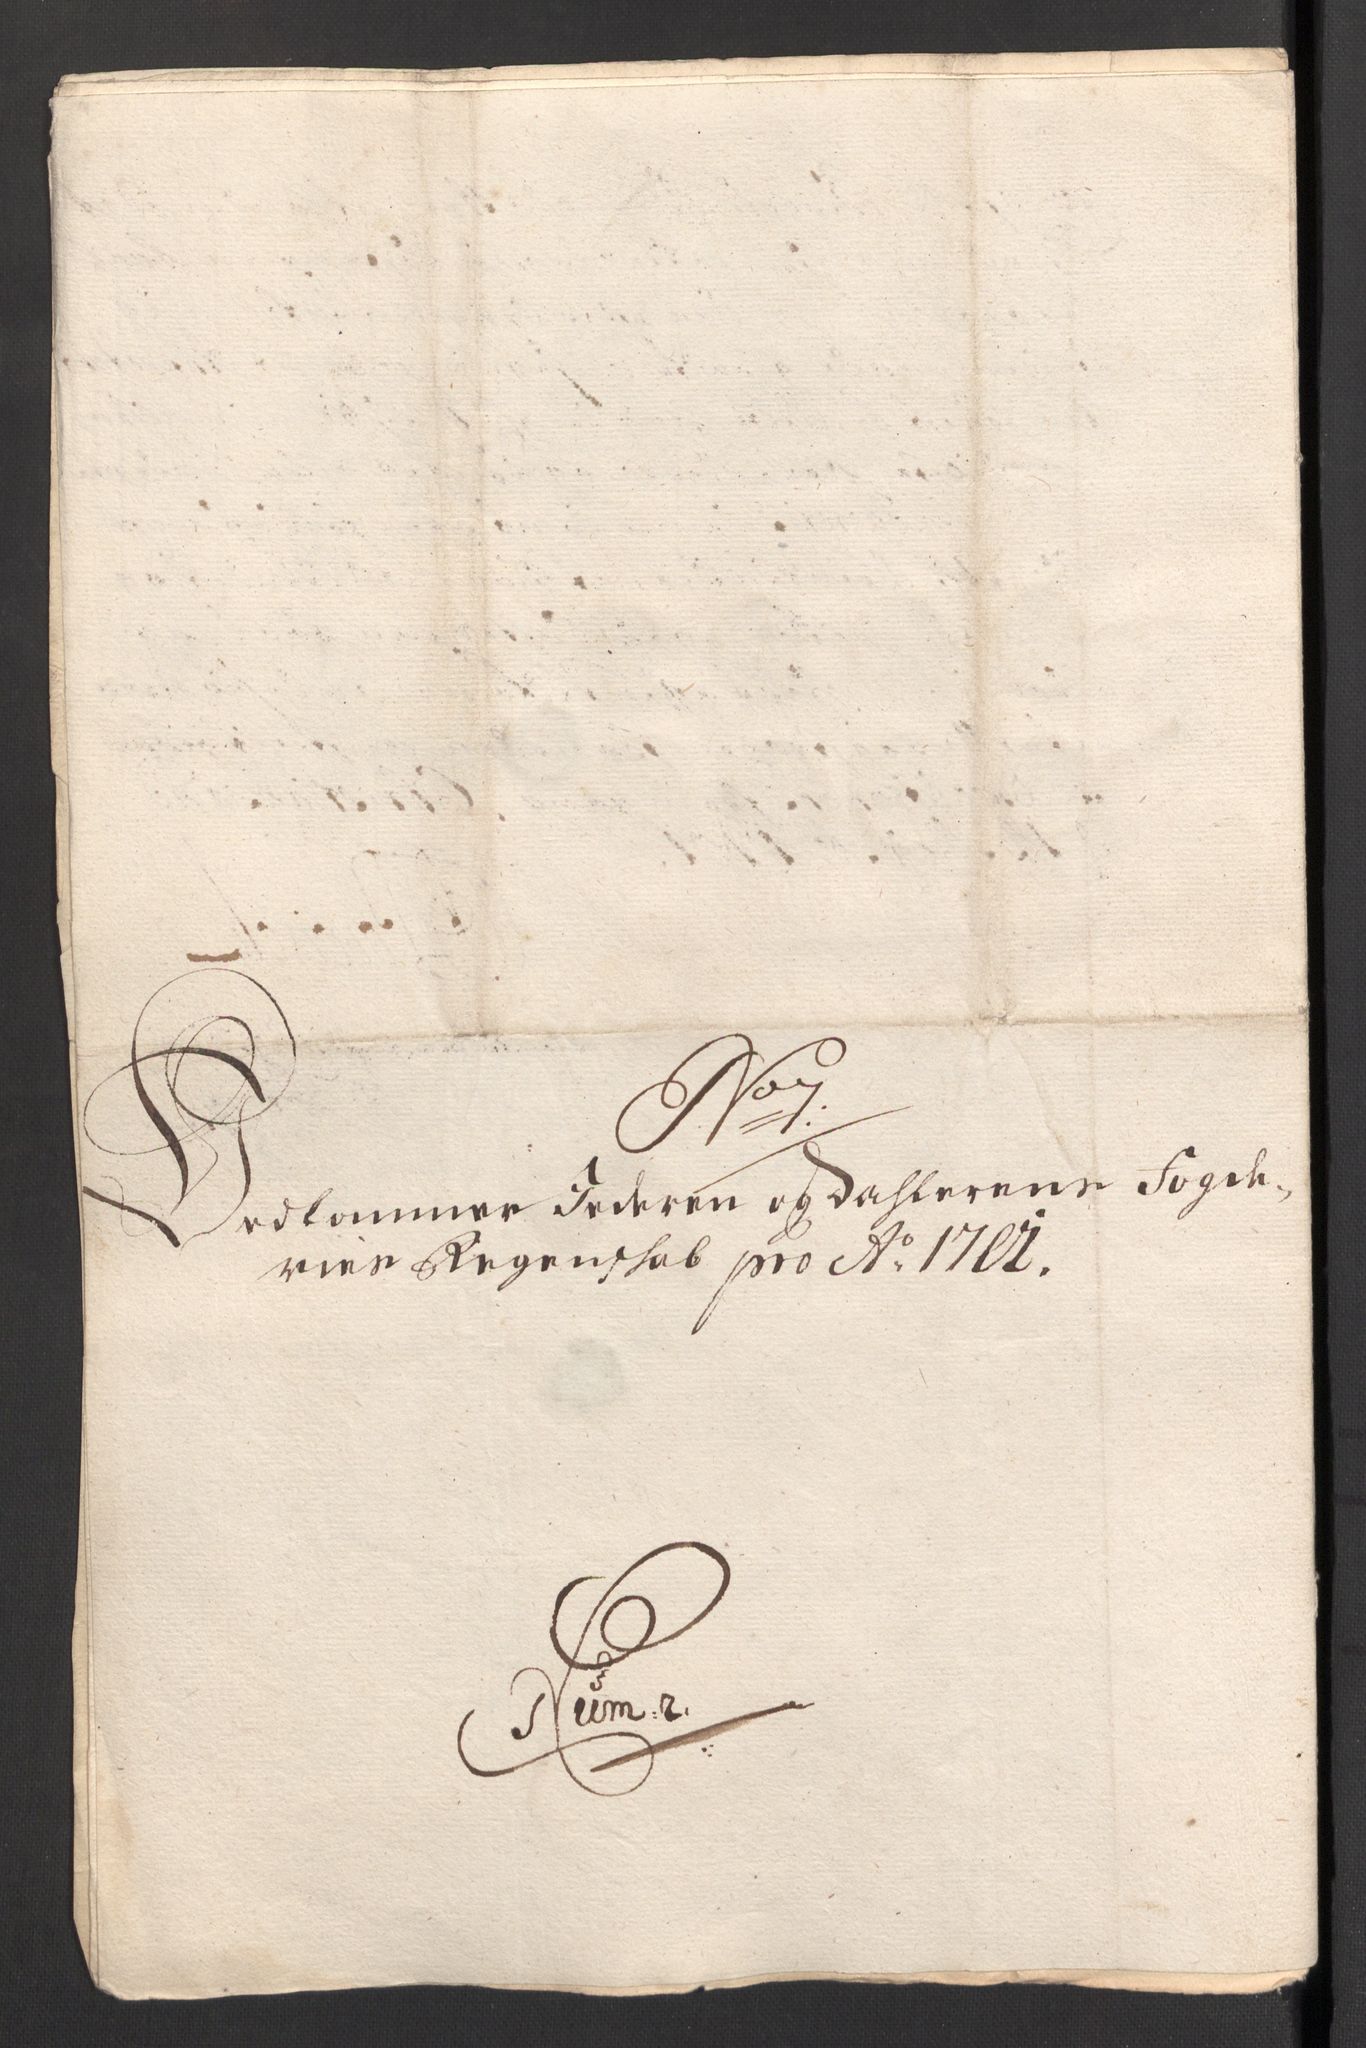 No 7.
Vedkommer Jederen og Dahlerens Fogde-
ries Regenskab pro Ao. 1701.
Num. 2.